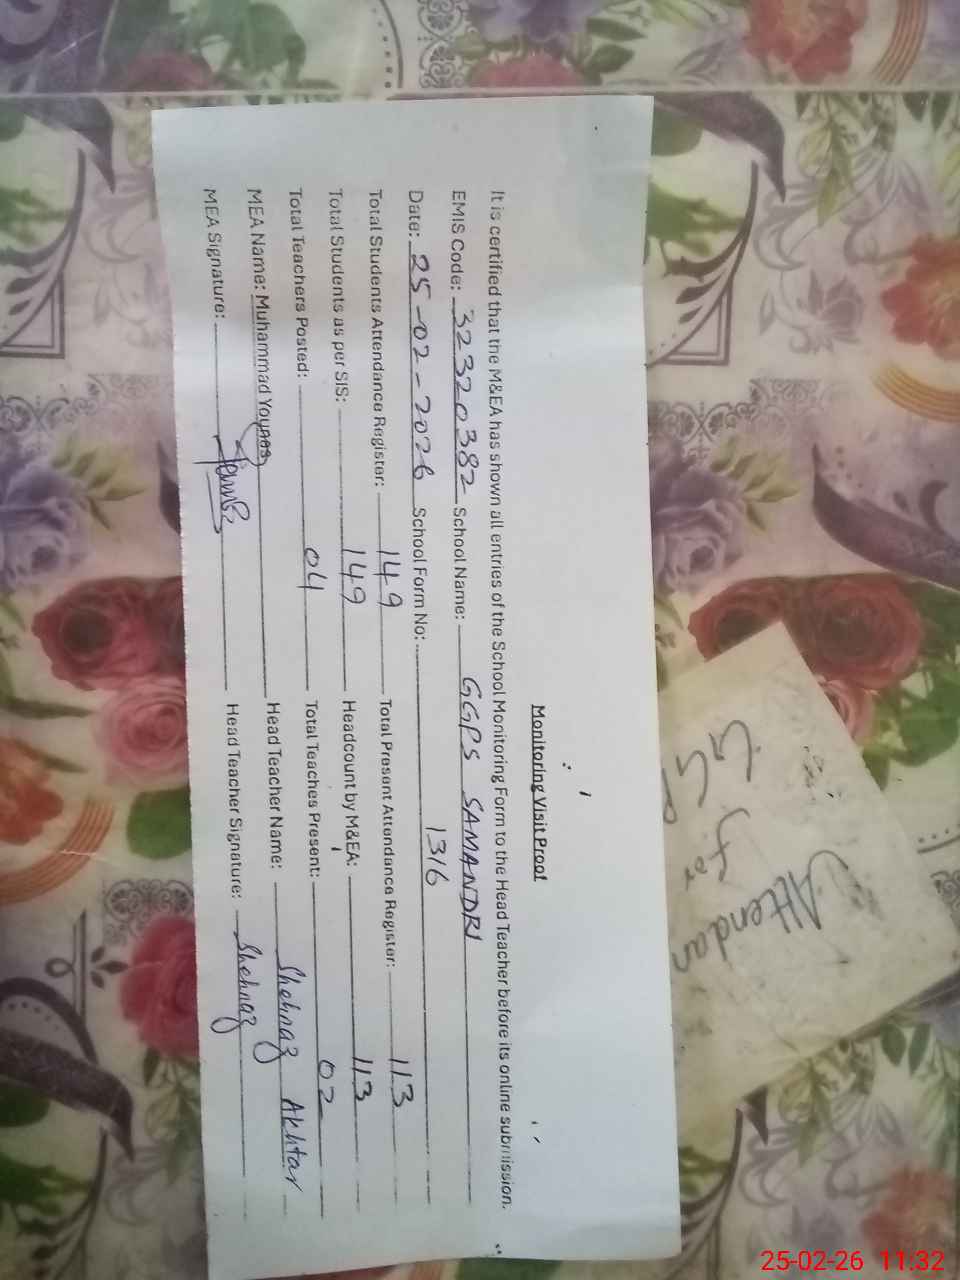 Monitoring Visit Proof
It is certified that the M&EA has shown all entries of the School Monitoring Form to the Head Teacher before its online submission.
EMIS Code: 32320382 School Name: GGPS SAMANDRI
Date: 25-02-2026 School Form No: 1316
Total Students Attendance Register: 149 Total Present Attendance Register: 113
Total Students as per SIS: 149 Headcount by M&EA: 113
Total Teachers Posted: 04 Total Teaches Present: 02
MEA Name: Muhammad Younas Head Teacher Name: Shehnaz Akhtar
MEA Signature: Head Teacher Signature: Shehnaz
Attendan
for
25-02-26 11:32